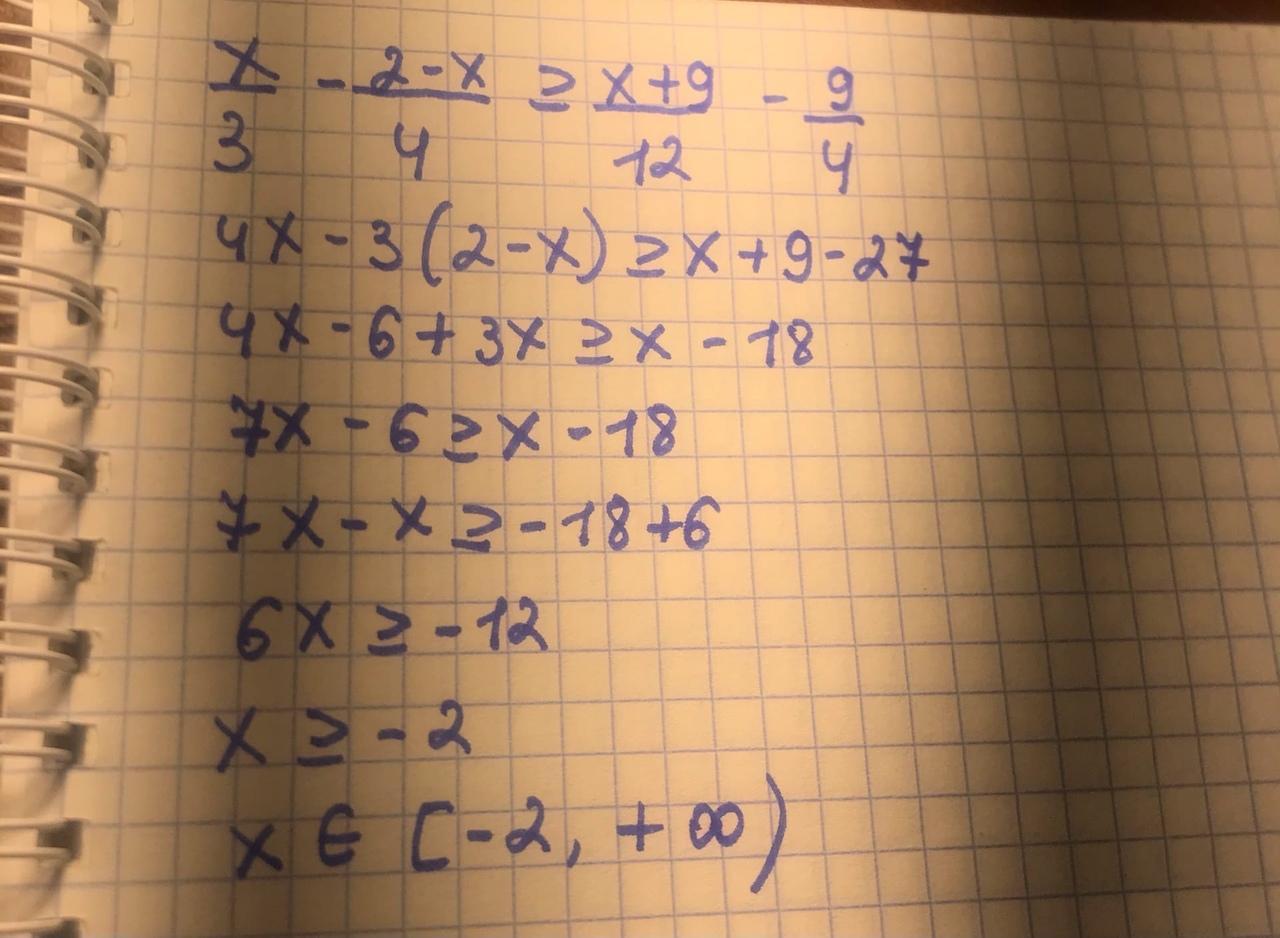 x/3 - (2-x)/4 ≥ (x+9)/12 - 9/4
4x - 3(2-x) ≥ x + 9 - 27
4x - 6 + 3x ≥ x - 18
7x - 6 ≥ x - 18
7x - x ≥ -18 + 6
6x ≥ -12
x ≥ -2
x ∈ [-2, +∞)